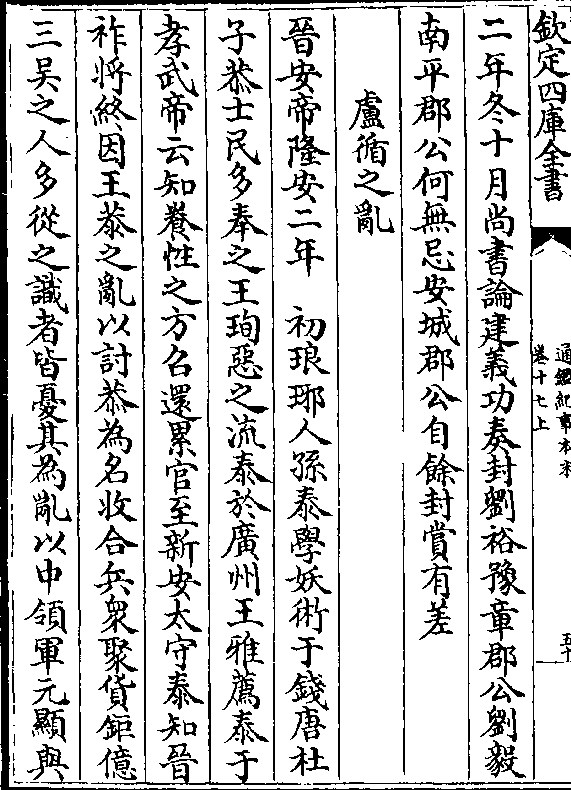 欽定四庫全書
通鑑紀事本末
卷十七上
五十
二年冬十月尚書論建義功奏封劉裕豫章郡公劉毅
南平郡公何無忌安城郡公自餘封賞有差
盧循之亂
晉安帝隆安二年　初琅邪人孫泰學妖術于錢唐杜
子恭士民多奉之王珣惡之流泰於廣州王雅薦泰于
孝武帝云知養性之方召還累官至新安太守泰知晉
祚將終因王恭之亂以討恭為名收合兵衆聚貨鉅億
三吳之人多從之識者皆憂其為亂以中領軍元顯與